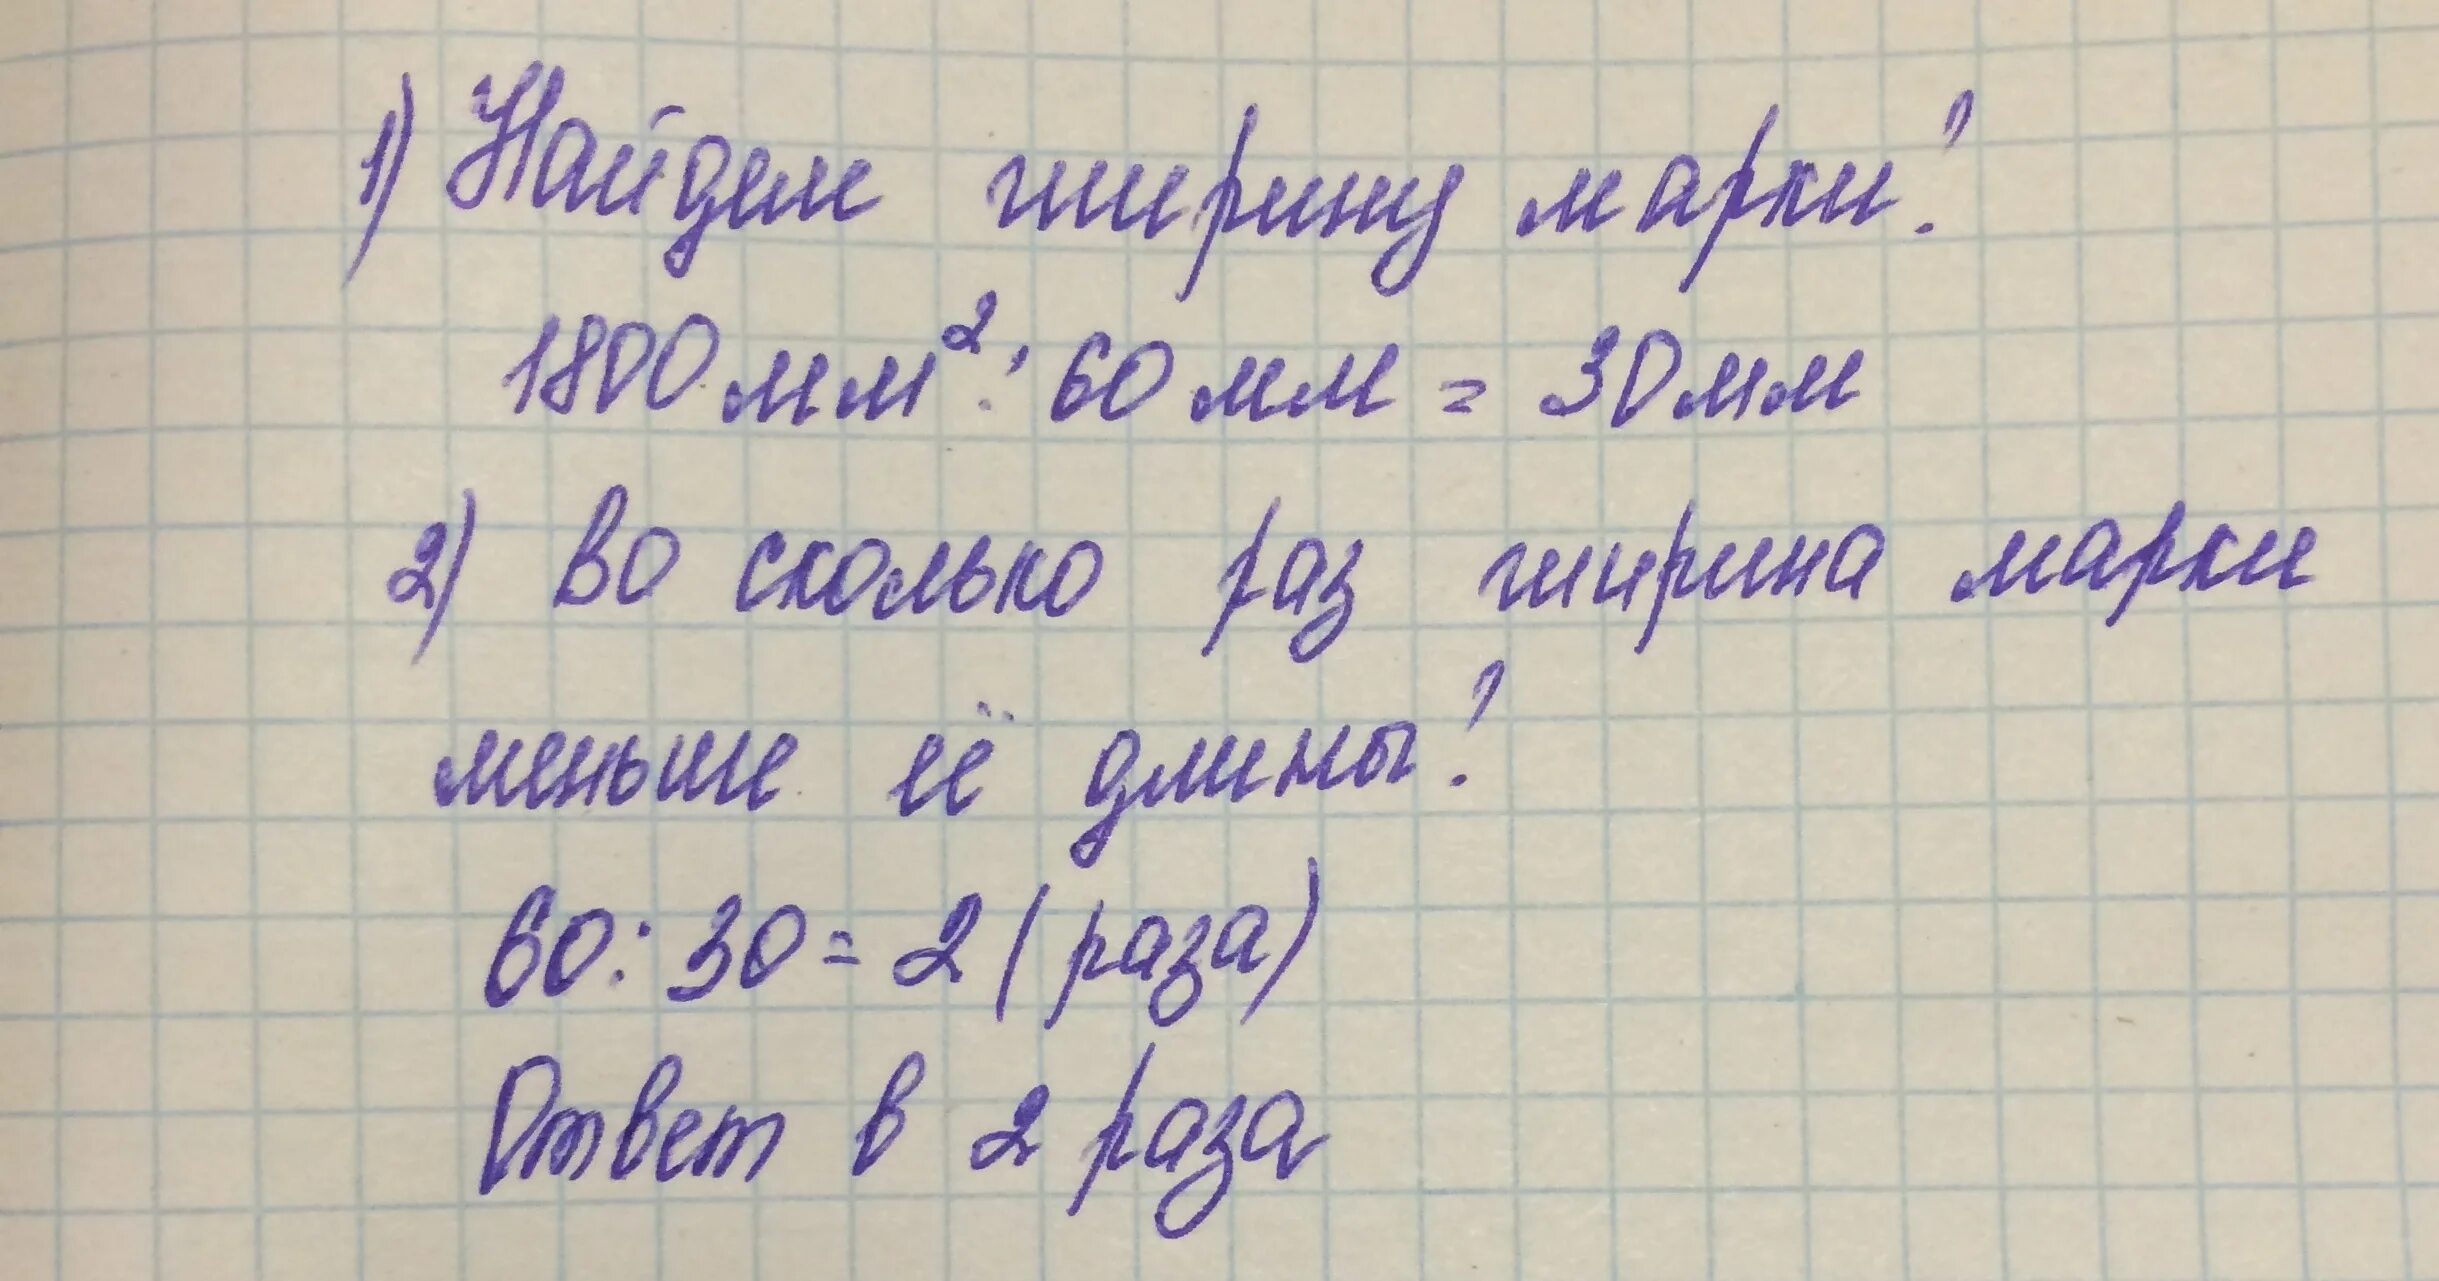 1) Найдем ширину марки?
1800 мм² : 60 мм = 30 мм
2) во сколько раз ширина марки
меньше её длины?
60 : 30 = 2 (раза)
Ответ в 2 раза